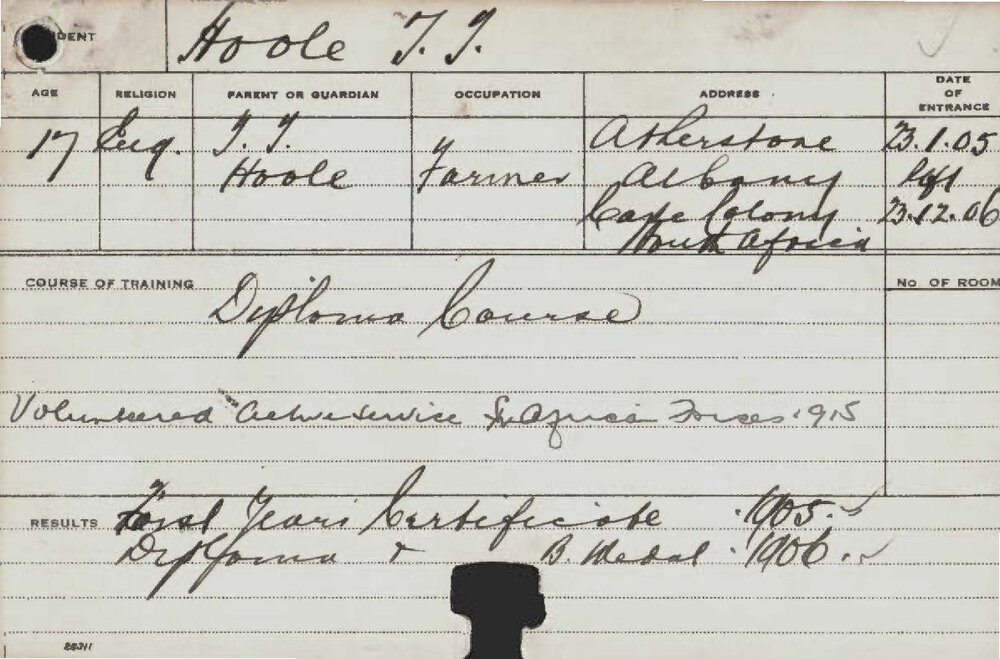 DENT Hoole T. T.
AGE RELIGION PARENT OR GUARDIAN OCCUPATION ADDRESS DATE OF ENTRANCE
17 Eng. T. T. Atherstone 23.1.05
Hoole Farmer Albany left
Cape Colony 23.12.06
South Africa
COURSE OF TRAINING Diploma Course No. OF ROOM
Volunteered active service S. Africa Forces 1915
RESULTS First Years Certificate 1905.
Diploma & B. Medal 1906.
28311